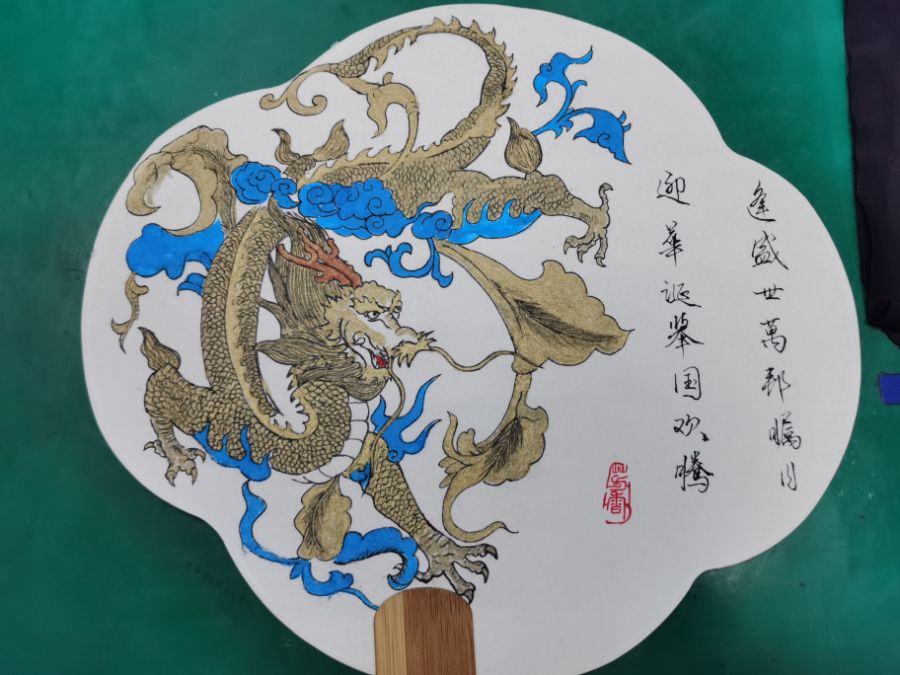 逢盛世萬邦瞩目
迎華诞举国欢腾